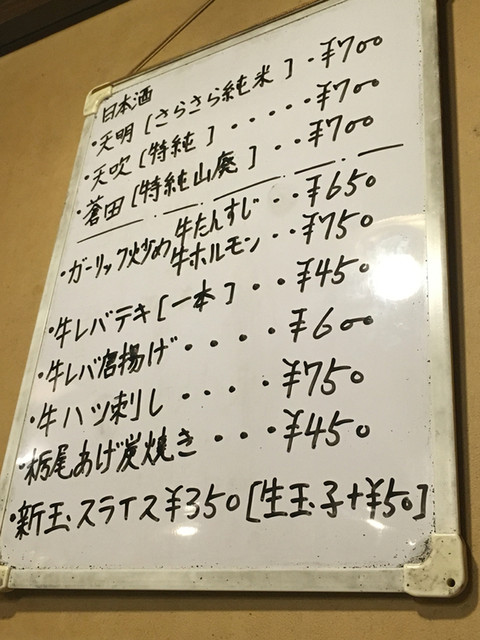 日本酒
・天明[さらさら純米]・¥700
・天吹[特純]・・・・・¥700
・蒼田[特純山廃]・・¥700
・ガーリック炒め 牛たんすじ・・¥650
牛ホルモン・・¥750
・牛レバテキ[一本]・・¥450
・牛レバ唐揚げ・・・・¥600
・牛ハツ刺し・・・・¥750
・栃尾あげ炭焼き・・・¥450
・新玉スライス¥350[生玉子+¥50]